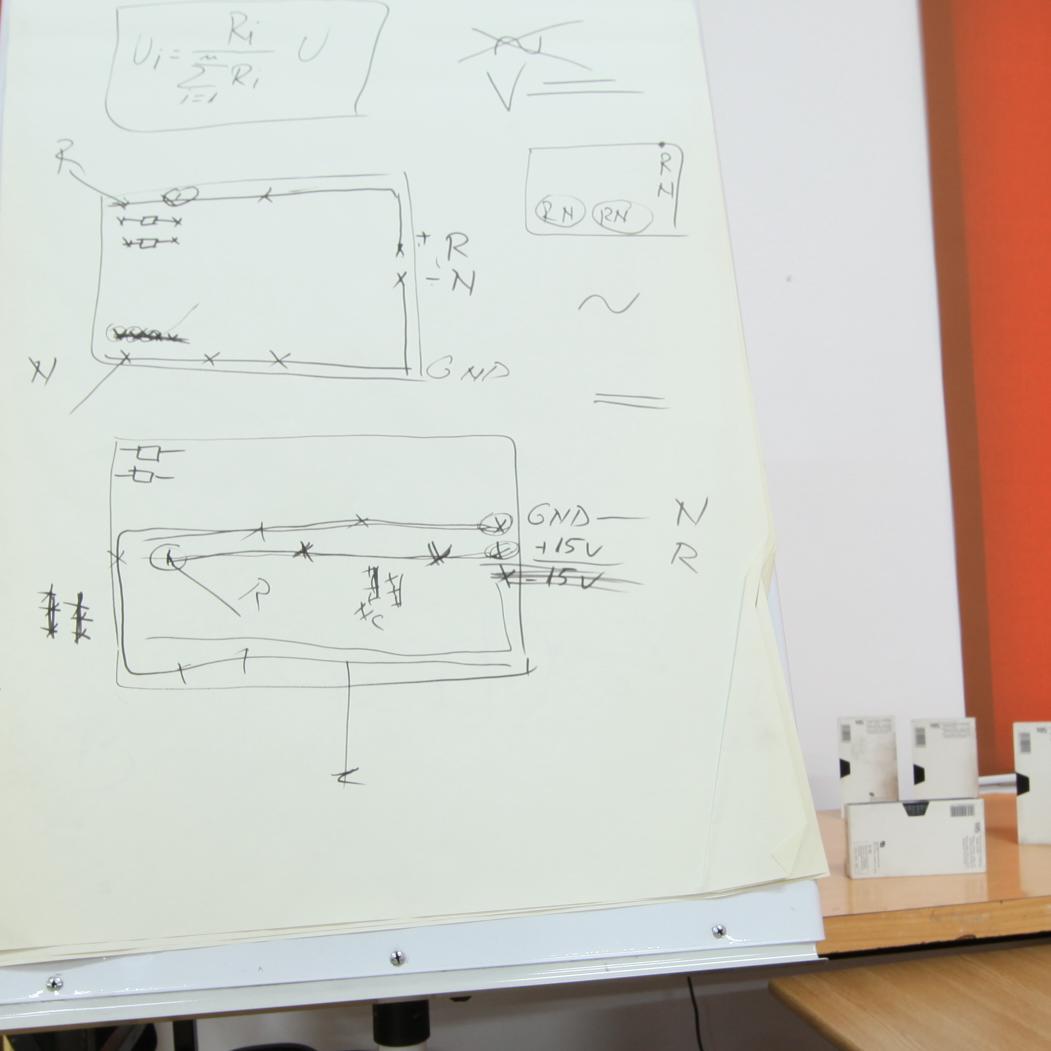 Ui = Ri / n Σ i=1 Ri U
V
R
R
N
RN RN
+ R
- N
N
GND
GND — N
+15V R
-15V
R
C